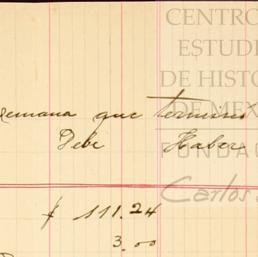 CENTRO
ESTUDI
DE HISTO
DE MEX
FUNDAC
Carlos
semana que terminó
Debe Haber
$ 111.24
3.00